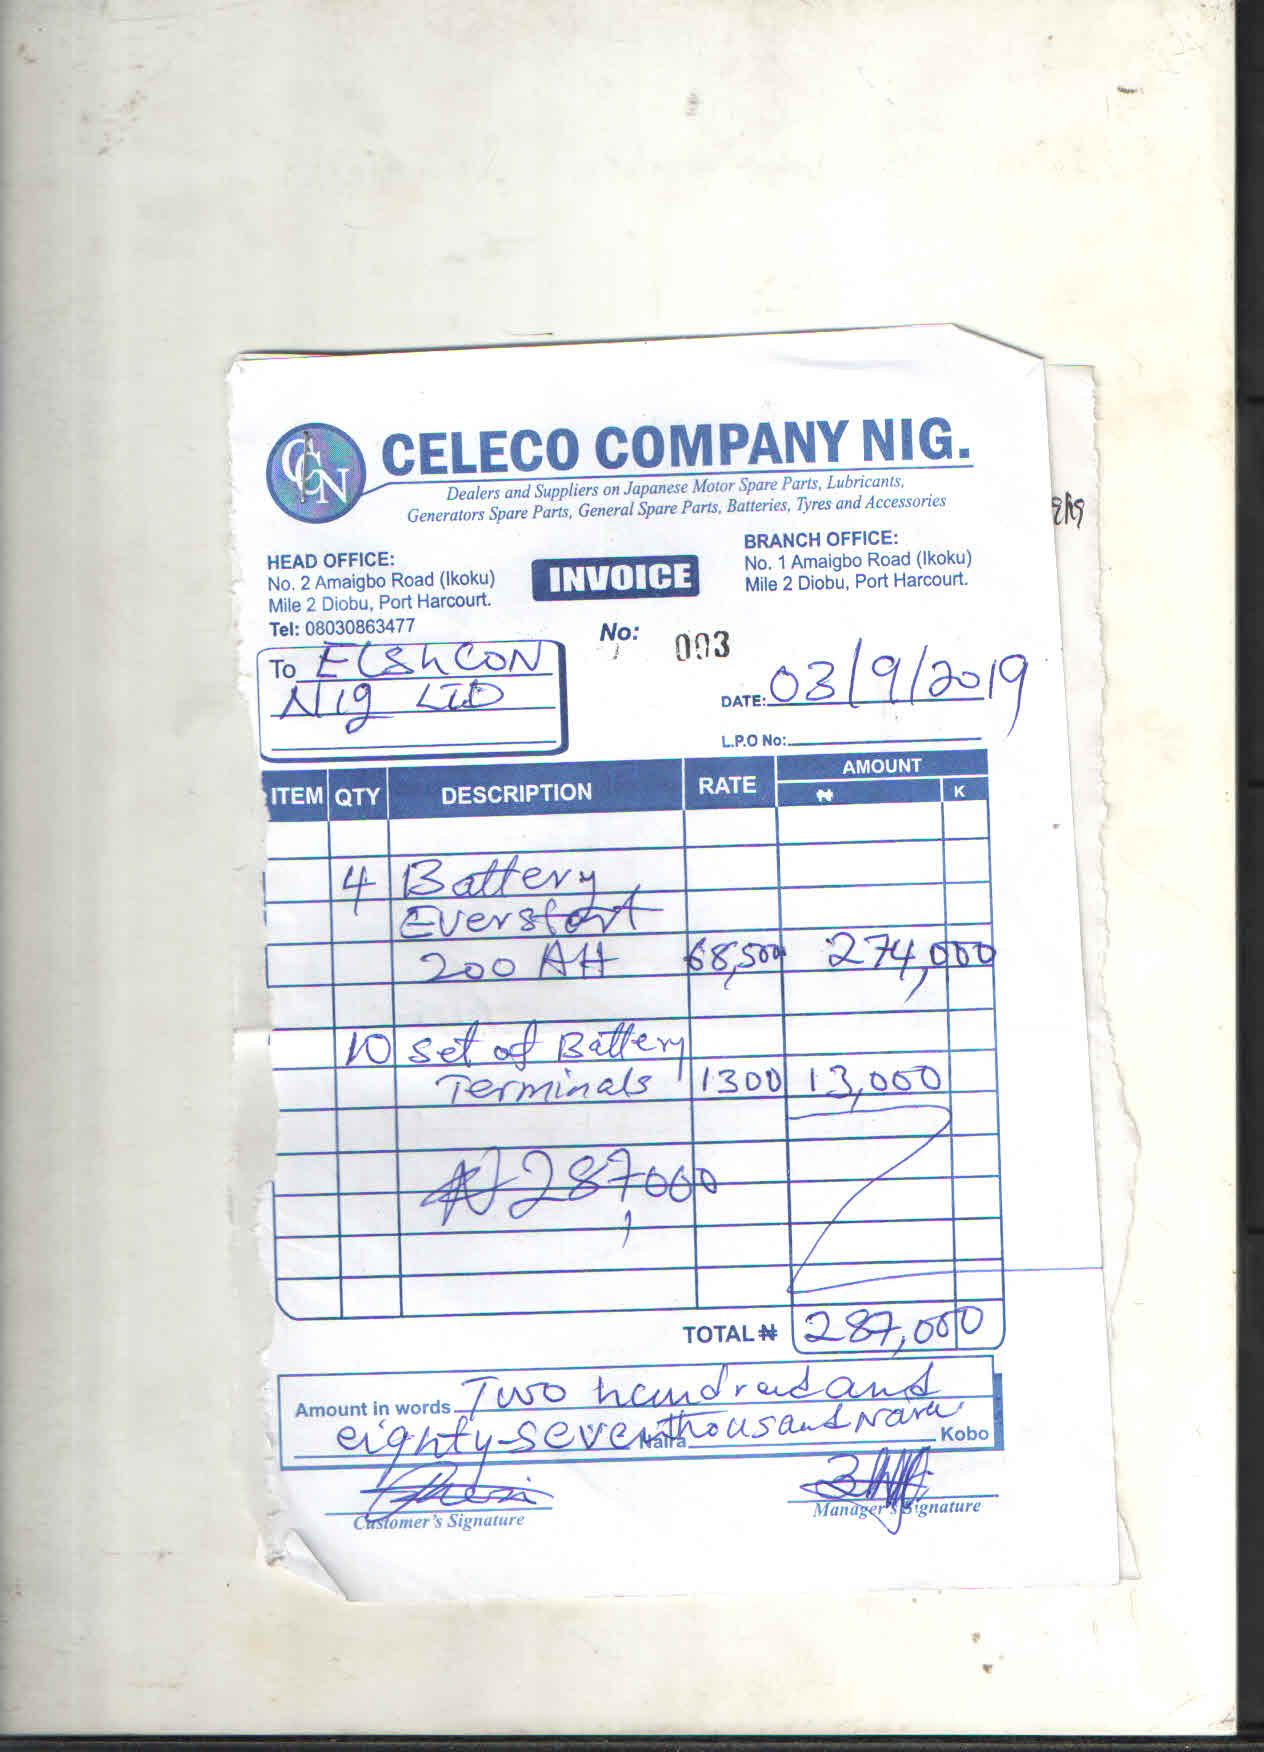 CCN
CELECO COMPANY NIG.
Dealers and Suppliers on Japanese Motor Spare Parts, Lubricants,
Generators Spare Parts, General Spare Parts, Batteries, Tyres and Accessories
HEAD OFFICE:
No. 2 Amaigbo Road (Ikoku)
Mile 2 Diobu, Port Harcourt.
Tel: 08030863477
INVOICE
BRANCH OFFICE:
No. 1 Amaigbo Road (Ikoku)
Mile 2 Diobu, Port Harcourt.
No: 003
To ElshCON
Nig LTD
DATE: 03/9/2019
L.P.O No:
ITEM QTY DESCRIPTION RATE AMOUNT
₦ K
4 Battery
Everstart
200 AH 68,500 274,000
10 Set of Battery
Terminals 1300 13,000
₦287,000
TOTAL ₦ 287,000
Amount in words Two hundred and
eighty-seven thousand Naira
Naira Kobo
Customer's Signature
Manager's Signature